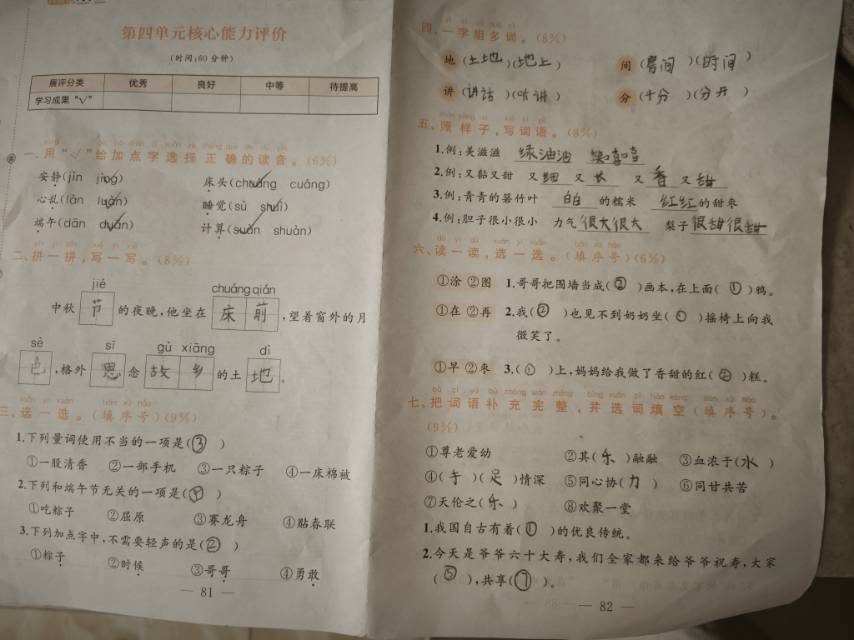 第四单元核心能力评价
(时间:60分钟)
展评分类 优秀 良好 中等 待提高
学习成果“√”
一、用“√”给加点字选择正确的读音。(6分)
安静(jìn jìng) 床头(chuáng cuáng)
心乱(làn luàn) 睡觉(sù shuì)
端午(dān duān) 计算(suàn shuàn)
二、拼一拼,写一写。(8分)
jié chuáng qián
中秋节的夜晚,他坐在床前,望着窗外的月
sè sī gù xiāng dì
色,格外思念故乡的土地。
三、选一选。(填序号)(9分)
1.下列量词使用不当的一项是(③)
①一股清香 ②一部手机 ③一只粽子 ④一床棉被
2.下列和端午节无关的一项是(④)
①吃粽子 ②屈原 ③赛龙舟 ④贴春联
3.下列加点字中,不需要轻声的是(②)
①粽子 ②时候 ③哥哥 ④勇敢
— 81 —
四、一字组多词。(8分)
地(土地)(地上) 间(房间)(时间)
讲(讲话)(听讲) 分(十分)(分开)
五、照样子,写词语。(8分)
1.例:美滋滋 绿油油 笑嘻嘻
2.例:又黏又甜 又细又长 又香又甜
3.例:青青的箬竹叶 白白的糯米 红红的甜枣
4.例:胆子很小很小 力气很大很大 梨子很甜很甜
六、读一读,选一选。(填序号)(6分)
①涂 ②图 1.哥哥把围墙当成(②)画本,在上面(①)鸦。
①在 ②再 2.我(②)也见不到奶奶坐(①)摇椅上向我
微笑了。
①早 ②枣 3.(①)上,妈妈给我做了香甜的红(②)糕。
七、把词语补充完整,并选词填空(填序号)。
(9分)
①尊老爱幼 ②其(乐)融融 ③血浓于(水)
④(手)(足)情深 ⑤同心协(力) ⑥同甘共苦
⑦天伦之(乐) ⑧欢聚一堂
1.我国自古有着(①)的优良传统。
2.今天是爷爷六十大寿,我们全家都来给爷爷祝寿,大家
(⑤),共享(⑦)。
— 82 —